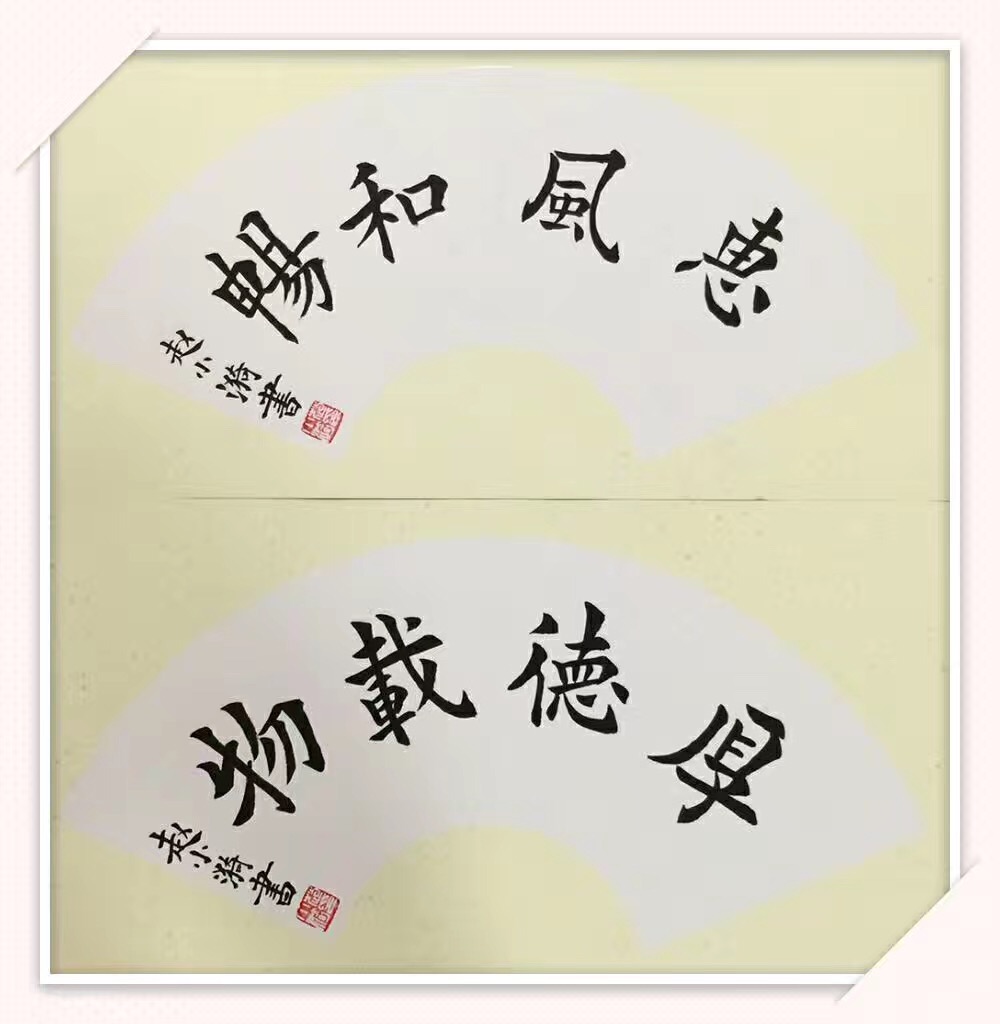 惠風和暢
赵小漪書
厚德載物
赵小漪書